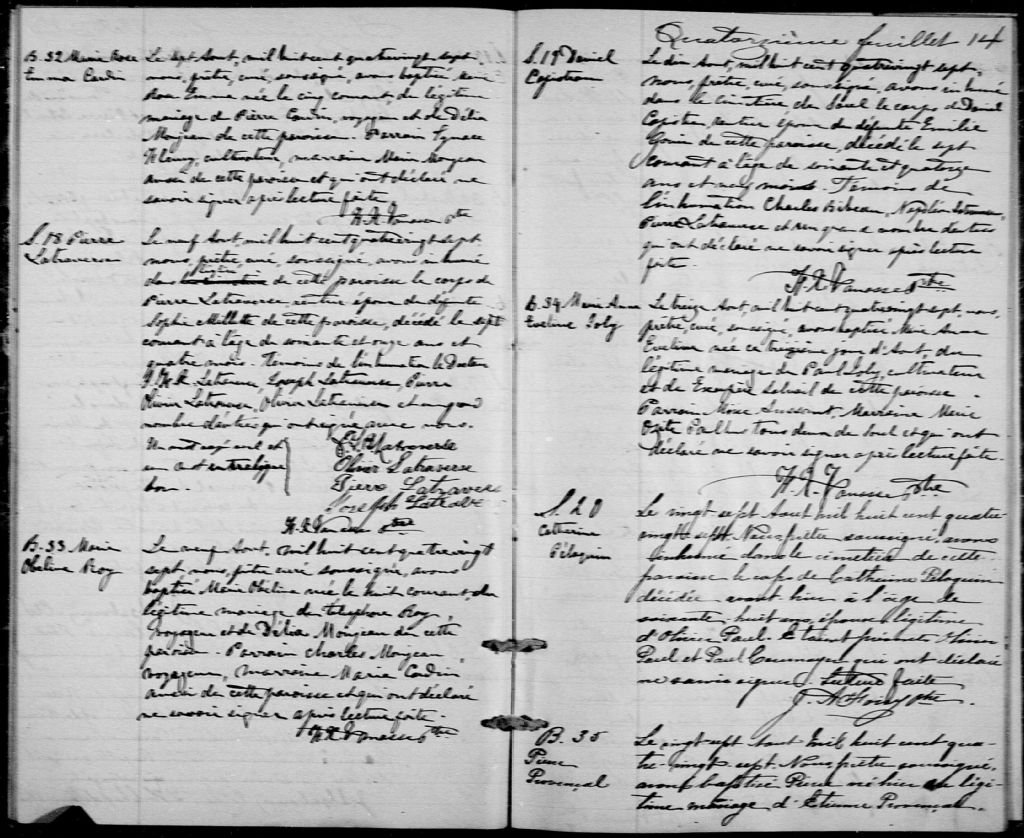 B. 32 Marie Rose
Emma Cardin
Le sept Aout, mil huit cent quatrevingt sept
nous, prêtre, curé, soussigné, avons baptisé Marie
Rose Emma née le cinq courant, du légitime
mariage de Pierre Cardin, voyageur et de Délia
Mongeau de cette paroisse. Parrain Ignace
cultivateur, marraine Marie Mongeau
aussi de cette paroisse et qui ont déclaré ne
savoir signer après lecture faite
H. A. Vanasse Ptre
S. 18 Pierre
Latraverse
Le neuf Aout, mil huit cent quatrevingt sept
nous, prêtre, curé, soussigné, avons inhumé
dans de cette paroisse le corps de
Pierre Latraverse, rentier époux de défunte
Sophie Millette de cette paroisse, décédé le sept
courant à l'âge de soixante et onze ans et
quatre mois. Temoins de l'inhumation le Docteur
Latraverse, Joseph Latraverse, Pierre
Olivier Latraverse, Olivier Latraverse et un grand
nombre d'autres qui ont signé avec nous.
Un mot rayé nul et
un mot entreligne
bon.
Latraverse
Oliver Latraverse
Pierre Latraverse
Joseph Latraverse
H. A. Vanasse Ptre
B. 33 Marie
Obeline Roy
Le neuf Aout, mil huit cent quatrevingt
sept, nous, prêtre curé soussigné, avons
baptisé Marie Obelina née le huit courant, du
légitime mariage de Télesphore Roy,
voyageur et de Délia Mongeau de cette
paroisse. Parrain Charles Mongeau,
voyageur, marraine Maria Cardin
aussi de cette paroisse et qui ont déclaré
ne savoir signer après lecture faite.
H. A. Vanasse Ptre
Quatorzième feuillet 14
S. 19 Daniel
Capistran
Le dix Aout, mil huit cent quatrevingt sept,
nous, prêtre, curé, soussigné, avons inhumé
dans le cimetière de Sorel le corps de Daniel
Capistran, rentier époux de défunte Emilie
Gouin de cette paroisse, décédé le sept
courant à l'âge de soixante et quatorze
ans et neuf mois. Temoins de
l'inhumation Charles Bibeau, Napoléon
Pierre Latraverse et un grand nombre d'autres
qui ont déclaré ne savoir signer après lecture
faite.
H. A. Vanasse Ptre
B. 34 Marie Anne
Eveline Joly
Le treize Aout, mil huit cent quatrevingt sept, nous,
prêtre, curé, soussigné, avons baptisé Marie Anne
Eveline née ce treizième jour d'Aout, du
légitime mariage de Paul Joly, cultivateur
et de Exupère de cette paroisse.
Parrain Moise Marraine Marie
tous deux de Sorel et qui ont
déclaré ne savoir signer après lecture faite.
H. A. Vanasse Ptre
S. 20
Catherine
Pélaquin
Le vingt sept Aout mil huit cent quatre
vingt sept. Nous prêtre soussigné, avons
inhumé dans le cimetière de cette
paroisse le corps de Catherine Pélaquin
décédée avant hier à l'âge de
soixante huit ans, épouse légitime
d'Olivier Paul. Etaient présents Olivier
Paul et Paul Cournoyer qui ont déclaré
ne savoir signer. Lecture faite
Ptre.
B. 35
Pierre
Provençal
Le vingt sept Aout Mil huit cent qua-
tre-vingt sept. Nous prêtre soussigné,
avons baptisé Pierre né hier du légi-
time mariage d'Etienne Provençal.